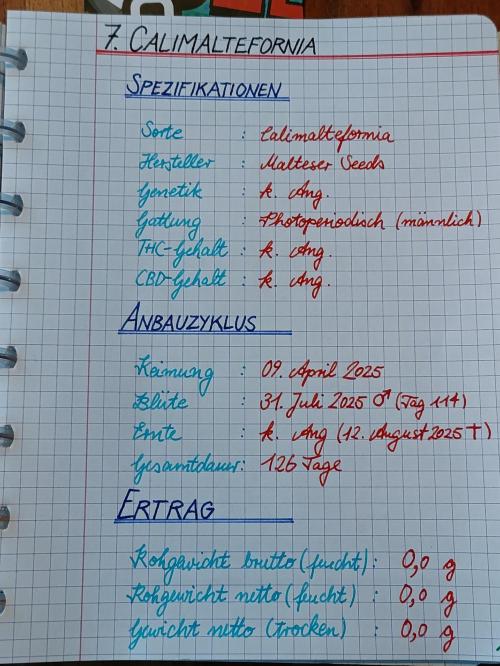 7. CALIMALTEFORNIA
SPEZIFIKATIONEN
Sorte : Calimalteformia
Hersteller : Malteser Seeds
Genetik : k. Ang.
Gattung : Photoperiodisch (männlich)
THC-Gehalt : k. Ang.
CBD-Gehalt : k. Ang.
ANBAUZYKLUS
Keimung : 09. April 2025
Blüte : 31. Juli 2025 ♂ (Tag 114)
Ernte : k. Ang (12. August 2025 †)
Gesamtdauer: 126 Tage
ERTRAG
Rohgewicht brutto (feucht) : 0,0 g
Rohgewicht netto (feucht) : 0,0 g
Gewicht netto (trocken) : 0,0 g